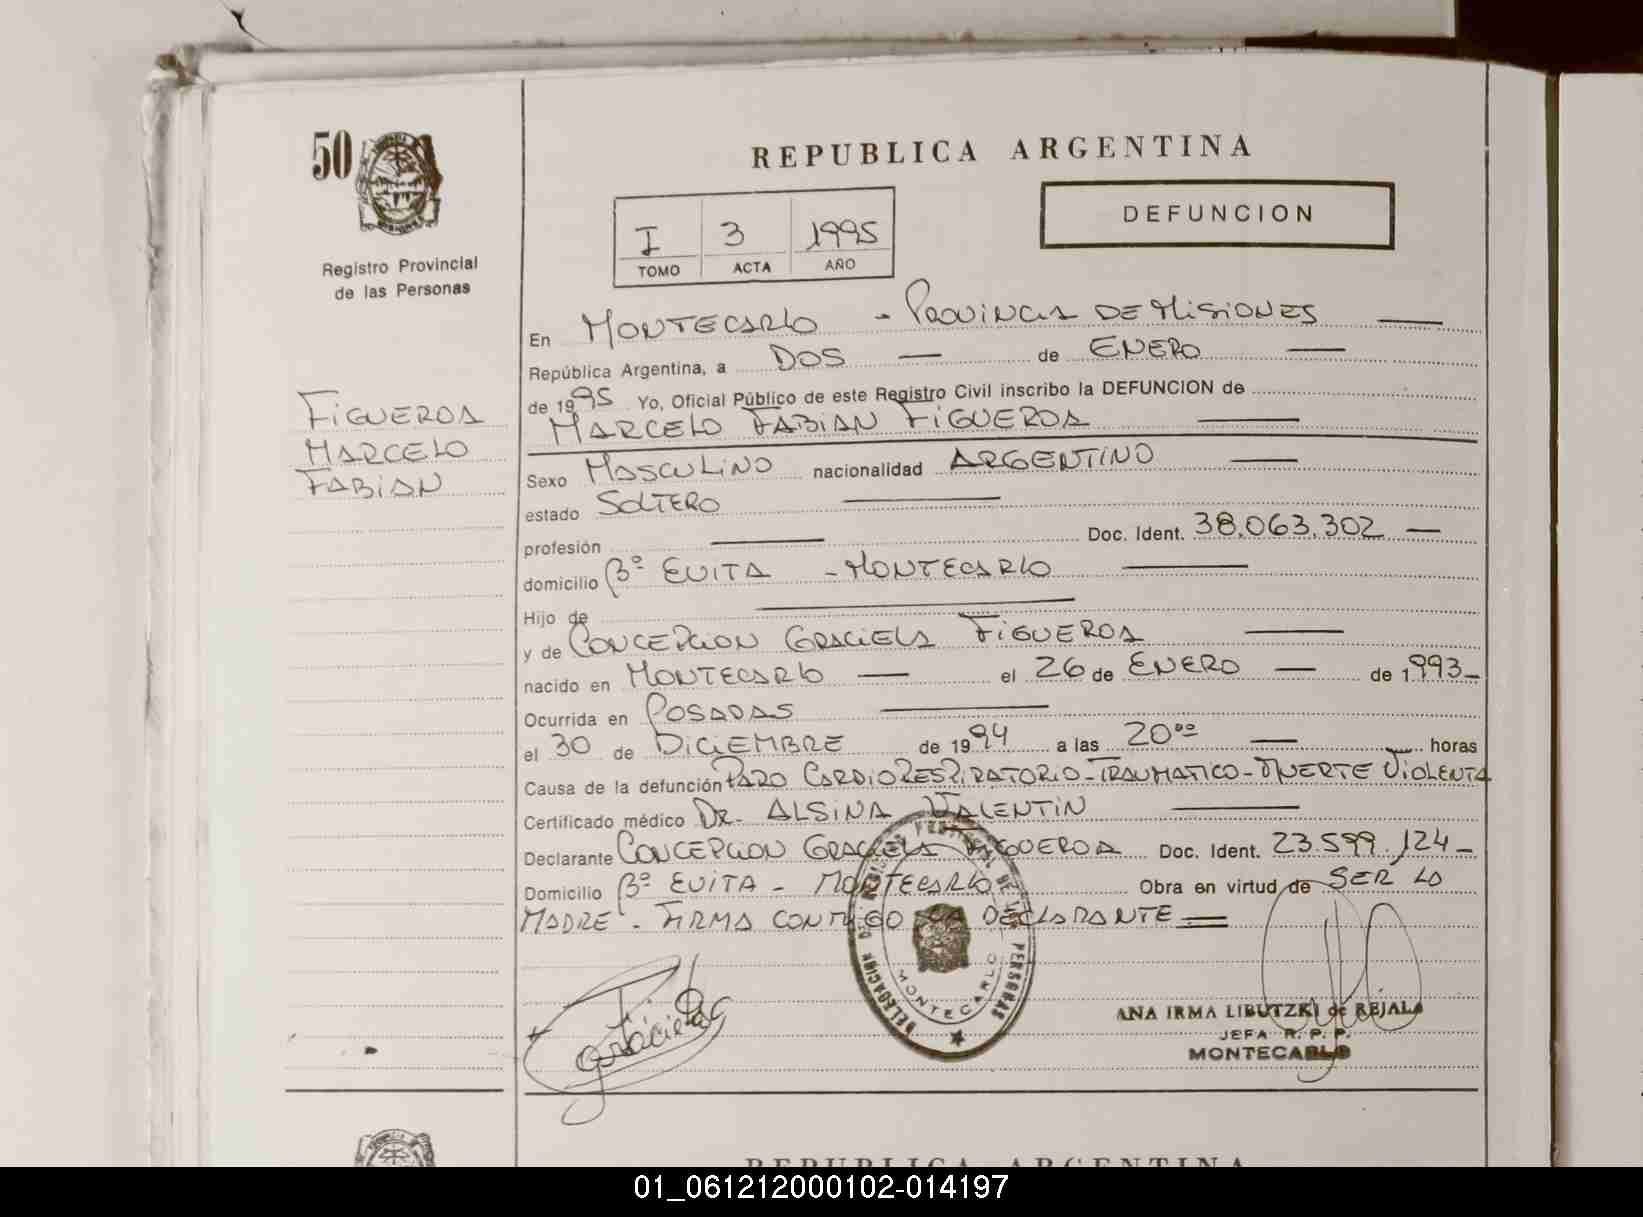 50
REPUBLICA ARGENTINA
Registro Provincial
de las Personas
I 3 1995
TOMO ACTA AÑO
DEFUNCION
FIGUEROA
MARCELO
FABIAN
En MONTECARLO - PROVINCIA DE MISIONES
República Argentina, a DOS de ENERO
de 1995 Yo, Oficial Público de este Registro Civil inscribo la DEFUNCION de
MARCELO FABIAN FIGUEROA
Sexo MASCULINO nacionalidad ARGENTINO
estado SOLTERO
profesión — Doc. Ident. 38.063.302 —
domicilio Bº EVITA - MONTECARLO
Hijo de
y de CONCEPCION GRACIELA FIGUEROA
nacido en MONTECARLO — el 26 de ENERO — de 1993 -
Ocurrida en POSADAS
el 30 de DICIEMBRE de 1994 a las 20⁰⁰ — horas
Causa de la defunción PARO CARDIORESPIRATORIO - TRAUMATICO - MUERTE VIOLENTA
Certificado médico DR. ALSINA VALENTIN
Declarante CONCEPCION GRACIELA FIGUEROA Doc. Ident. 23.599.124 -
Domicilio Bº EVITA - MONTECARLO Obra en virtud de SER LA
MADRE - FIRMA CONMIGO LA DECLARANTE =
Graciela
MONTECARLO
ANA IRMA LIBUTZKI de REJALA
JEFA R. P. P.
MONTECARLO
REPUBLICA ARGENTINA
01_061212000102-014197